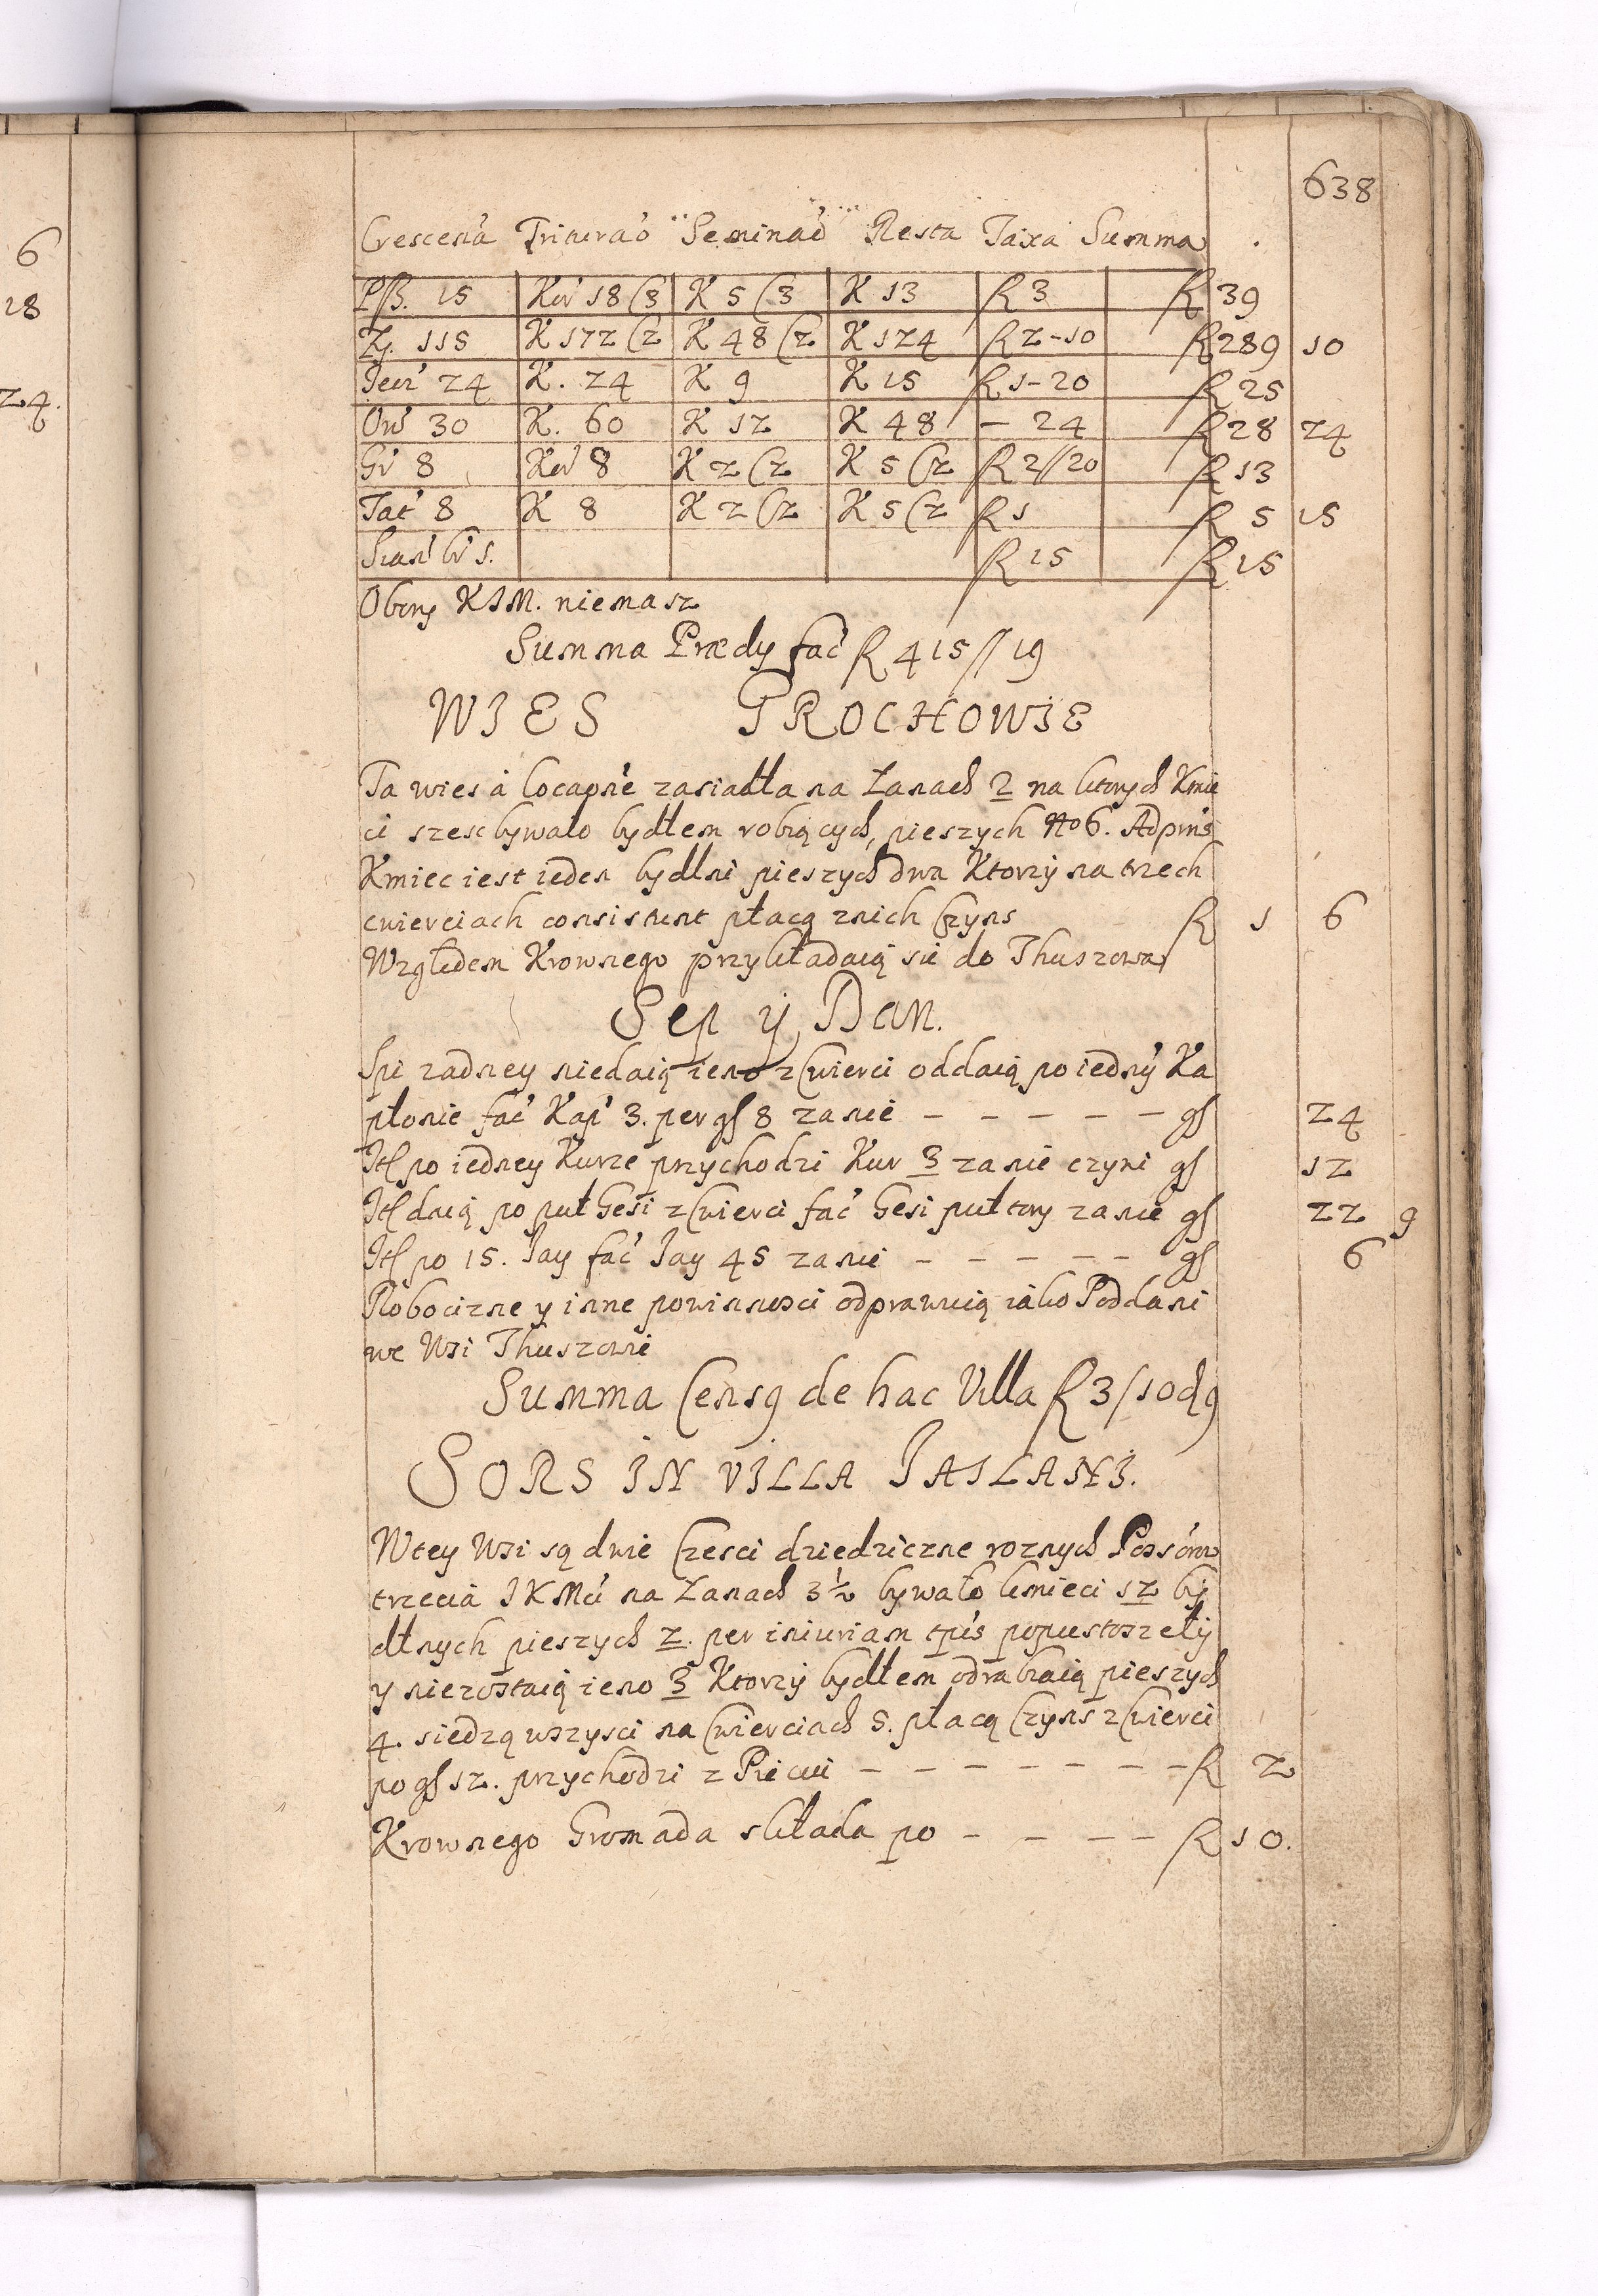 6
18
24.
638
Crescen'a Triturao' Seminao' Resta Taxa Summa
Pß. 15 Kor' 18 C3 K 5 C3 K 13 R 3 R 39
Zy. 115 K 172 C2 K 48 C2 K 124 R 2-10 R 289 10
Jecz' 24 K. 24 K 9 K 15 R 1-20 R 25
Ow' 30 K. 60 K 12 K 48 - 24 R 28 24
Gr' 8 Kor' 8 K 2 C2 K 5 C2 R 2//20 R 13
Tat' 8 K 8 K 2 C2 K 5 C2 R 1 R 5 15
Sian' br' 1. R 15 R 15
Obory KJM. niemasz
Summa Prædy fac' R 415//19
WIES GROCHOWIE
Ta wies à locaõne zasiadła na Łanach 2 na ktorych Kmie
ci szesc bywało bydłem robiących, pieszych No 6. Adpn's
Kmiec iest ieden bydlni pieszych dwa Ktorzy na trzech
cwierciach consistunt płacą znich Czyns R 1 6
Względem Krownego przykładaią sie do Thuszowa
Sep y Dan.
Spi zadney niedaią ieno z Cwierci oddaią po iedny' Ka
płonie fac' Kap' 3. per gſ 8 za nie - - - - - gſ 24
Itſ po iedney Kurze przychodzi Kur 3 za nie czyni gſ 12
Itſ daią po puł Gesi z Cwierci fac' Gesi pułtory za nie gſ 22 9
Itſ po 15. Jay fac' Jay 45 za nie - - - - - gſ 6
Robocizne y inne powinnosci odprawuią iako Poddani
we Wsi Thuszowie
Summa Censq de hac Villa R 3/10 d 9
SORS IN VILLA JASLANI.
Wtey Wsi są dwie Czesci dziedziczne roznych Poss'orow
trzecia JKMci na Łanach 3½ bywało kmieci 12 by
dłnych pieszych 2. per iniuriam tp's popustoszeły
y niezostaią ieno 3 Ktorzy bydłem odrabiaią pieszych
4. siedzą wszysci na Cwierciach 5. płacą Czyns z Cwierci
po gſ 12. przychodzi z Piecui - - - - - - - R 2
Krownego Gromada składa po - - - - R 10.